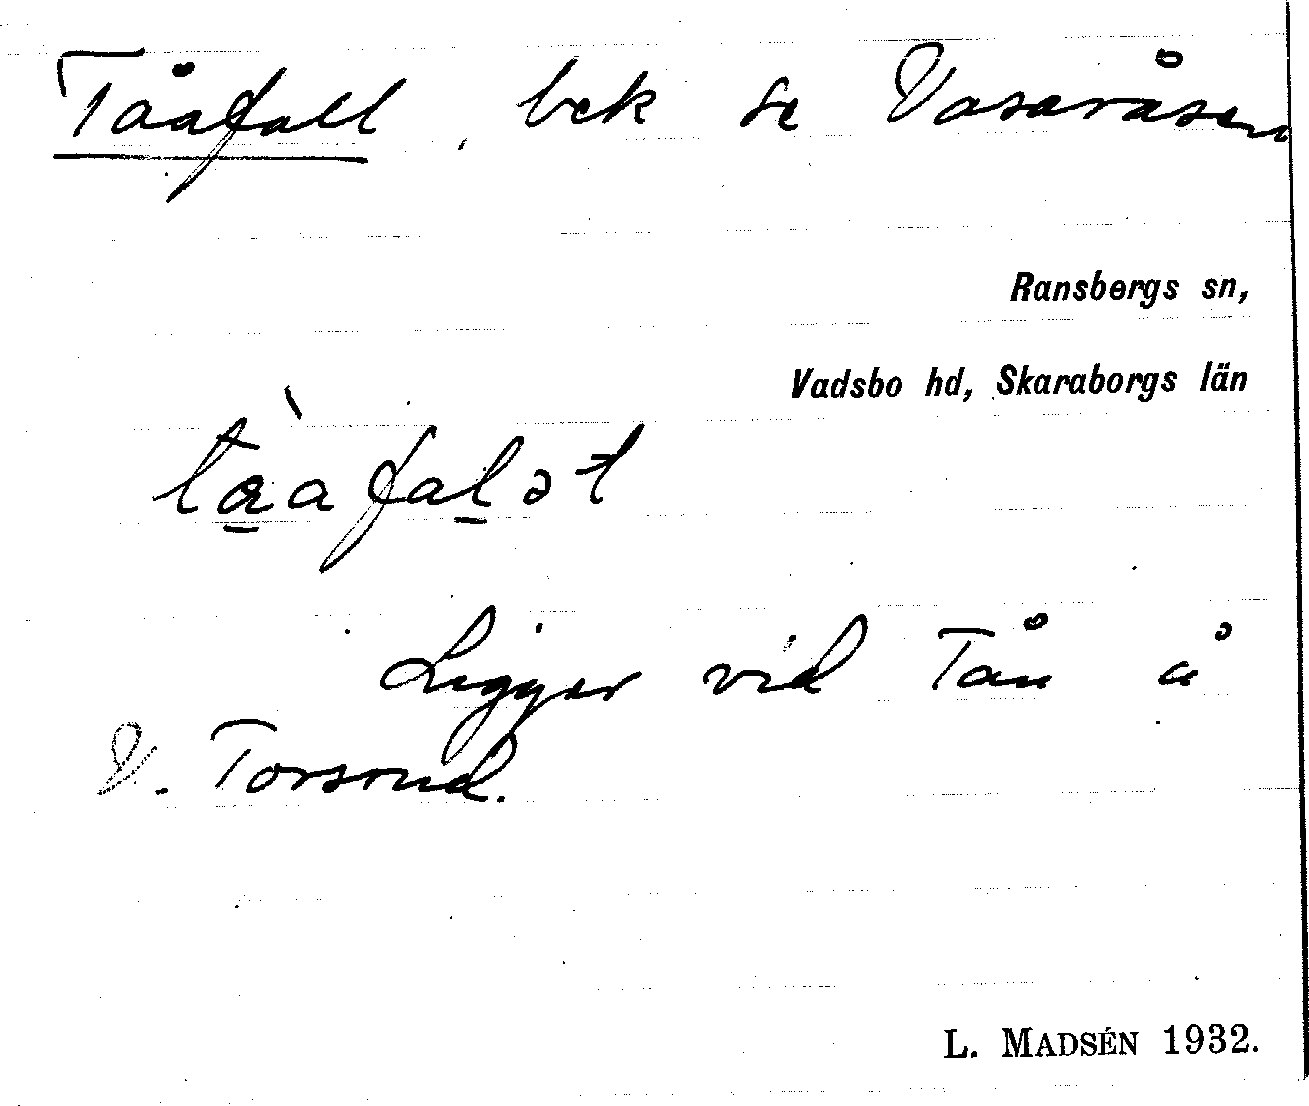 Tåafall, bek se Vasaråsen
Ransbergs sn,
Vadsbo hd, Skaraborgs län
Ligger vid Tån å
V. Torsrud.
L. MADSÉN 1932.